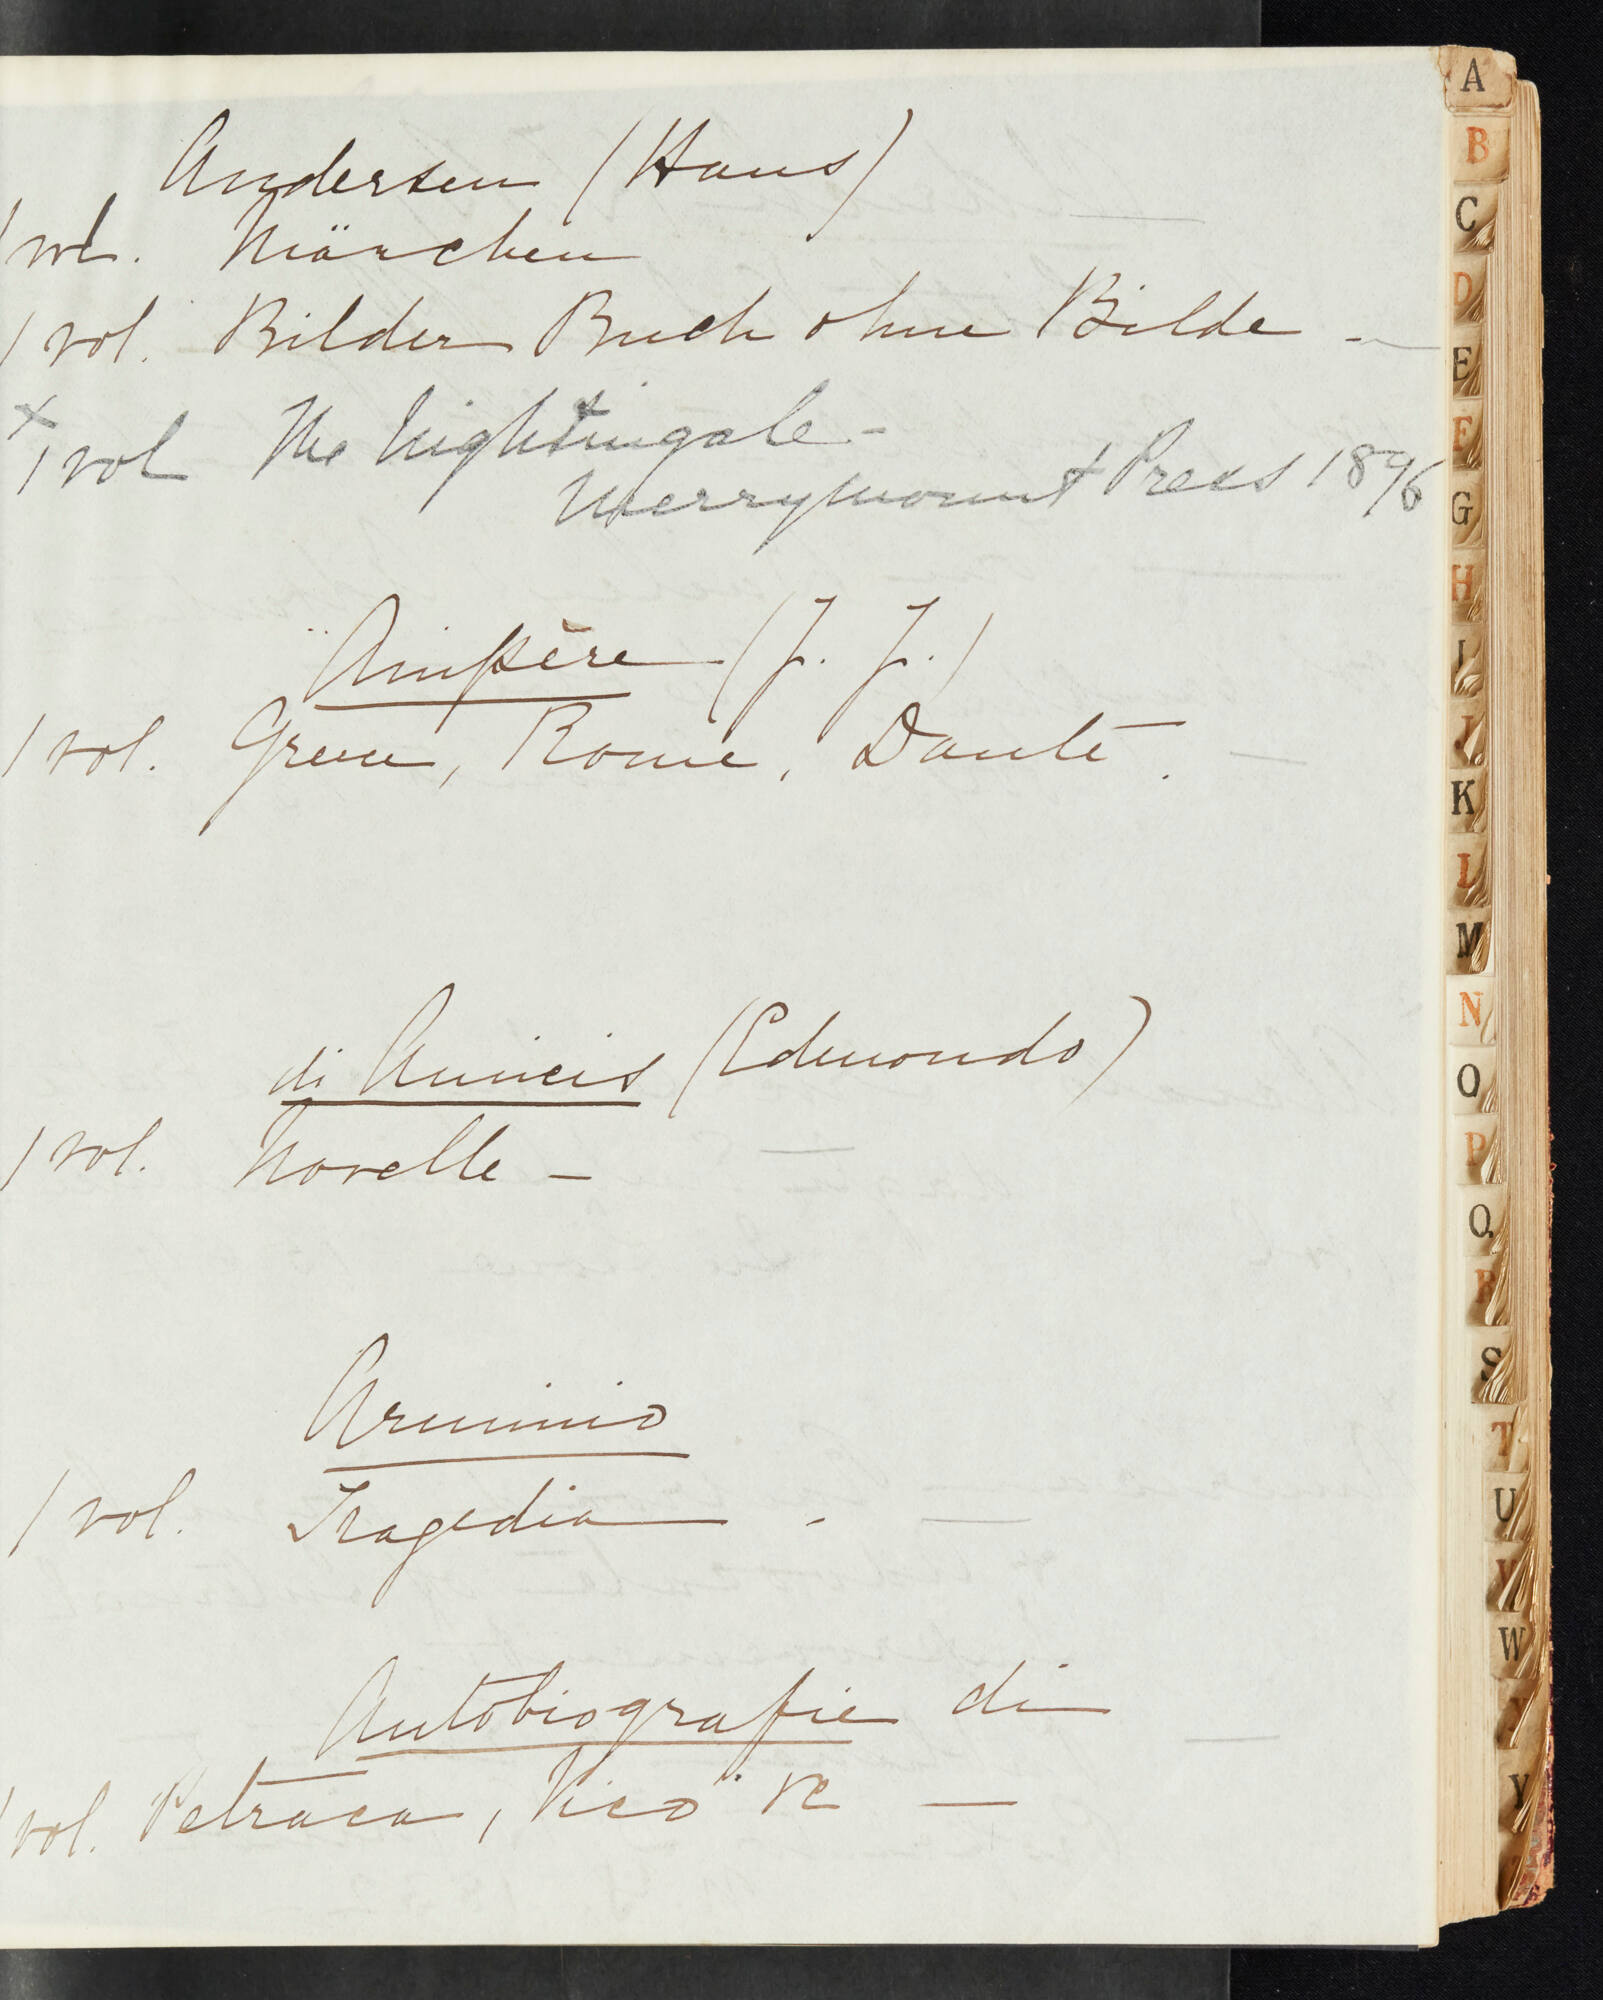 Andersen (Hans)
1 vol. Märchen
1 vol. Bilder Buch ohne Bilde -
x
1 vol The Nightingale -
Merrymount Press 1896
Ampère (J. J.)
1 vol. Grece, Rome, Dante.
di Amicis (Edmondo)
1 vol. Novelle -
Arminio
1 vol. Tragedia -
Autobiografie di
1 vol. Petraca, Vico &c -
A
B
C
D
E
F
G
H
I
J
K
L
M
N
O
P
Q
R
S
T
U
V
W
X
Y